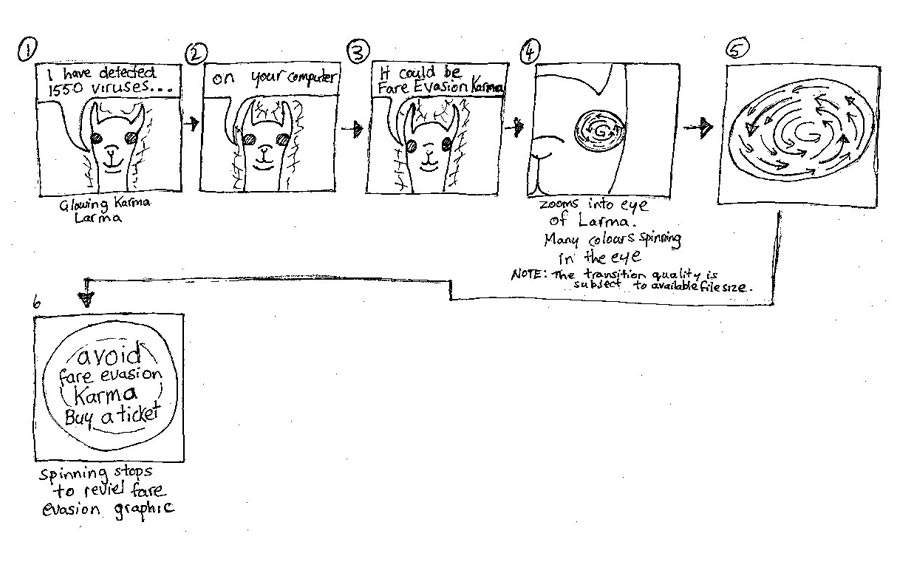 1
I have detected
1550 viruses...
Glowing Karma
Larma
2
on your computer
3
It could be
Fare Evasion Karma
4
zooms into eye
of Larma.
Many colours spinning
in the eye
NOTE: The transition quality is
subject to available file size.
5
6
avoid
fare evasion
Karma
Buy a ticket
Spinning stops
to reviel fare
evasion graphic